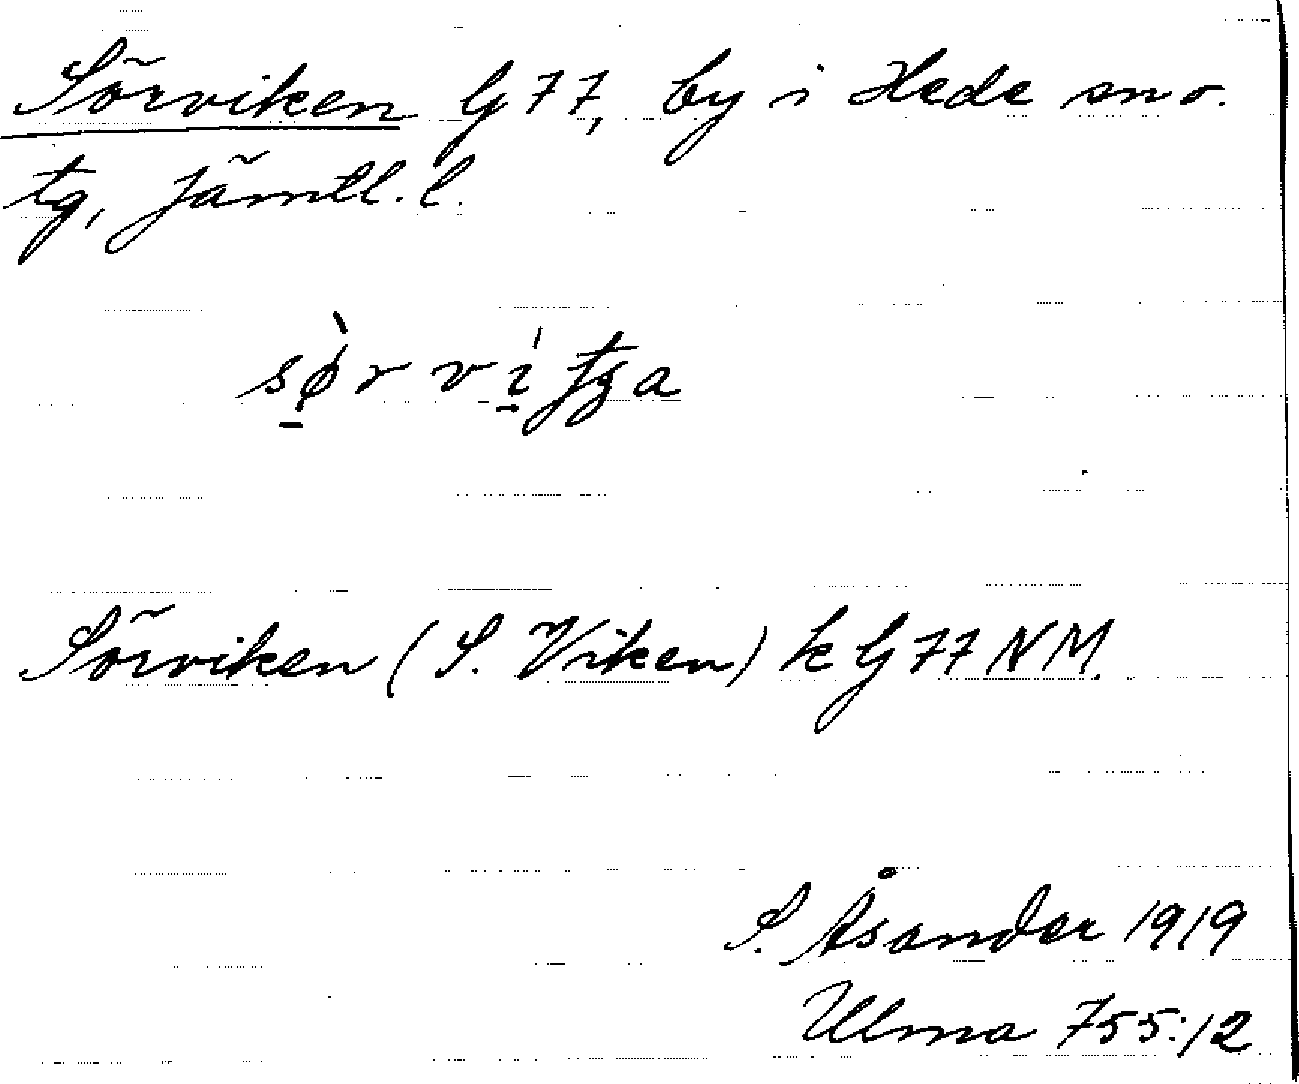 Sörviken G 77, by i Hede sn o.
tg, Jämtl. l.
sø̀r vítʒa
Sörviken (S. Viken) k G 77 NM.
S. Åsander 1919
Ulma 755:12